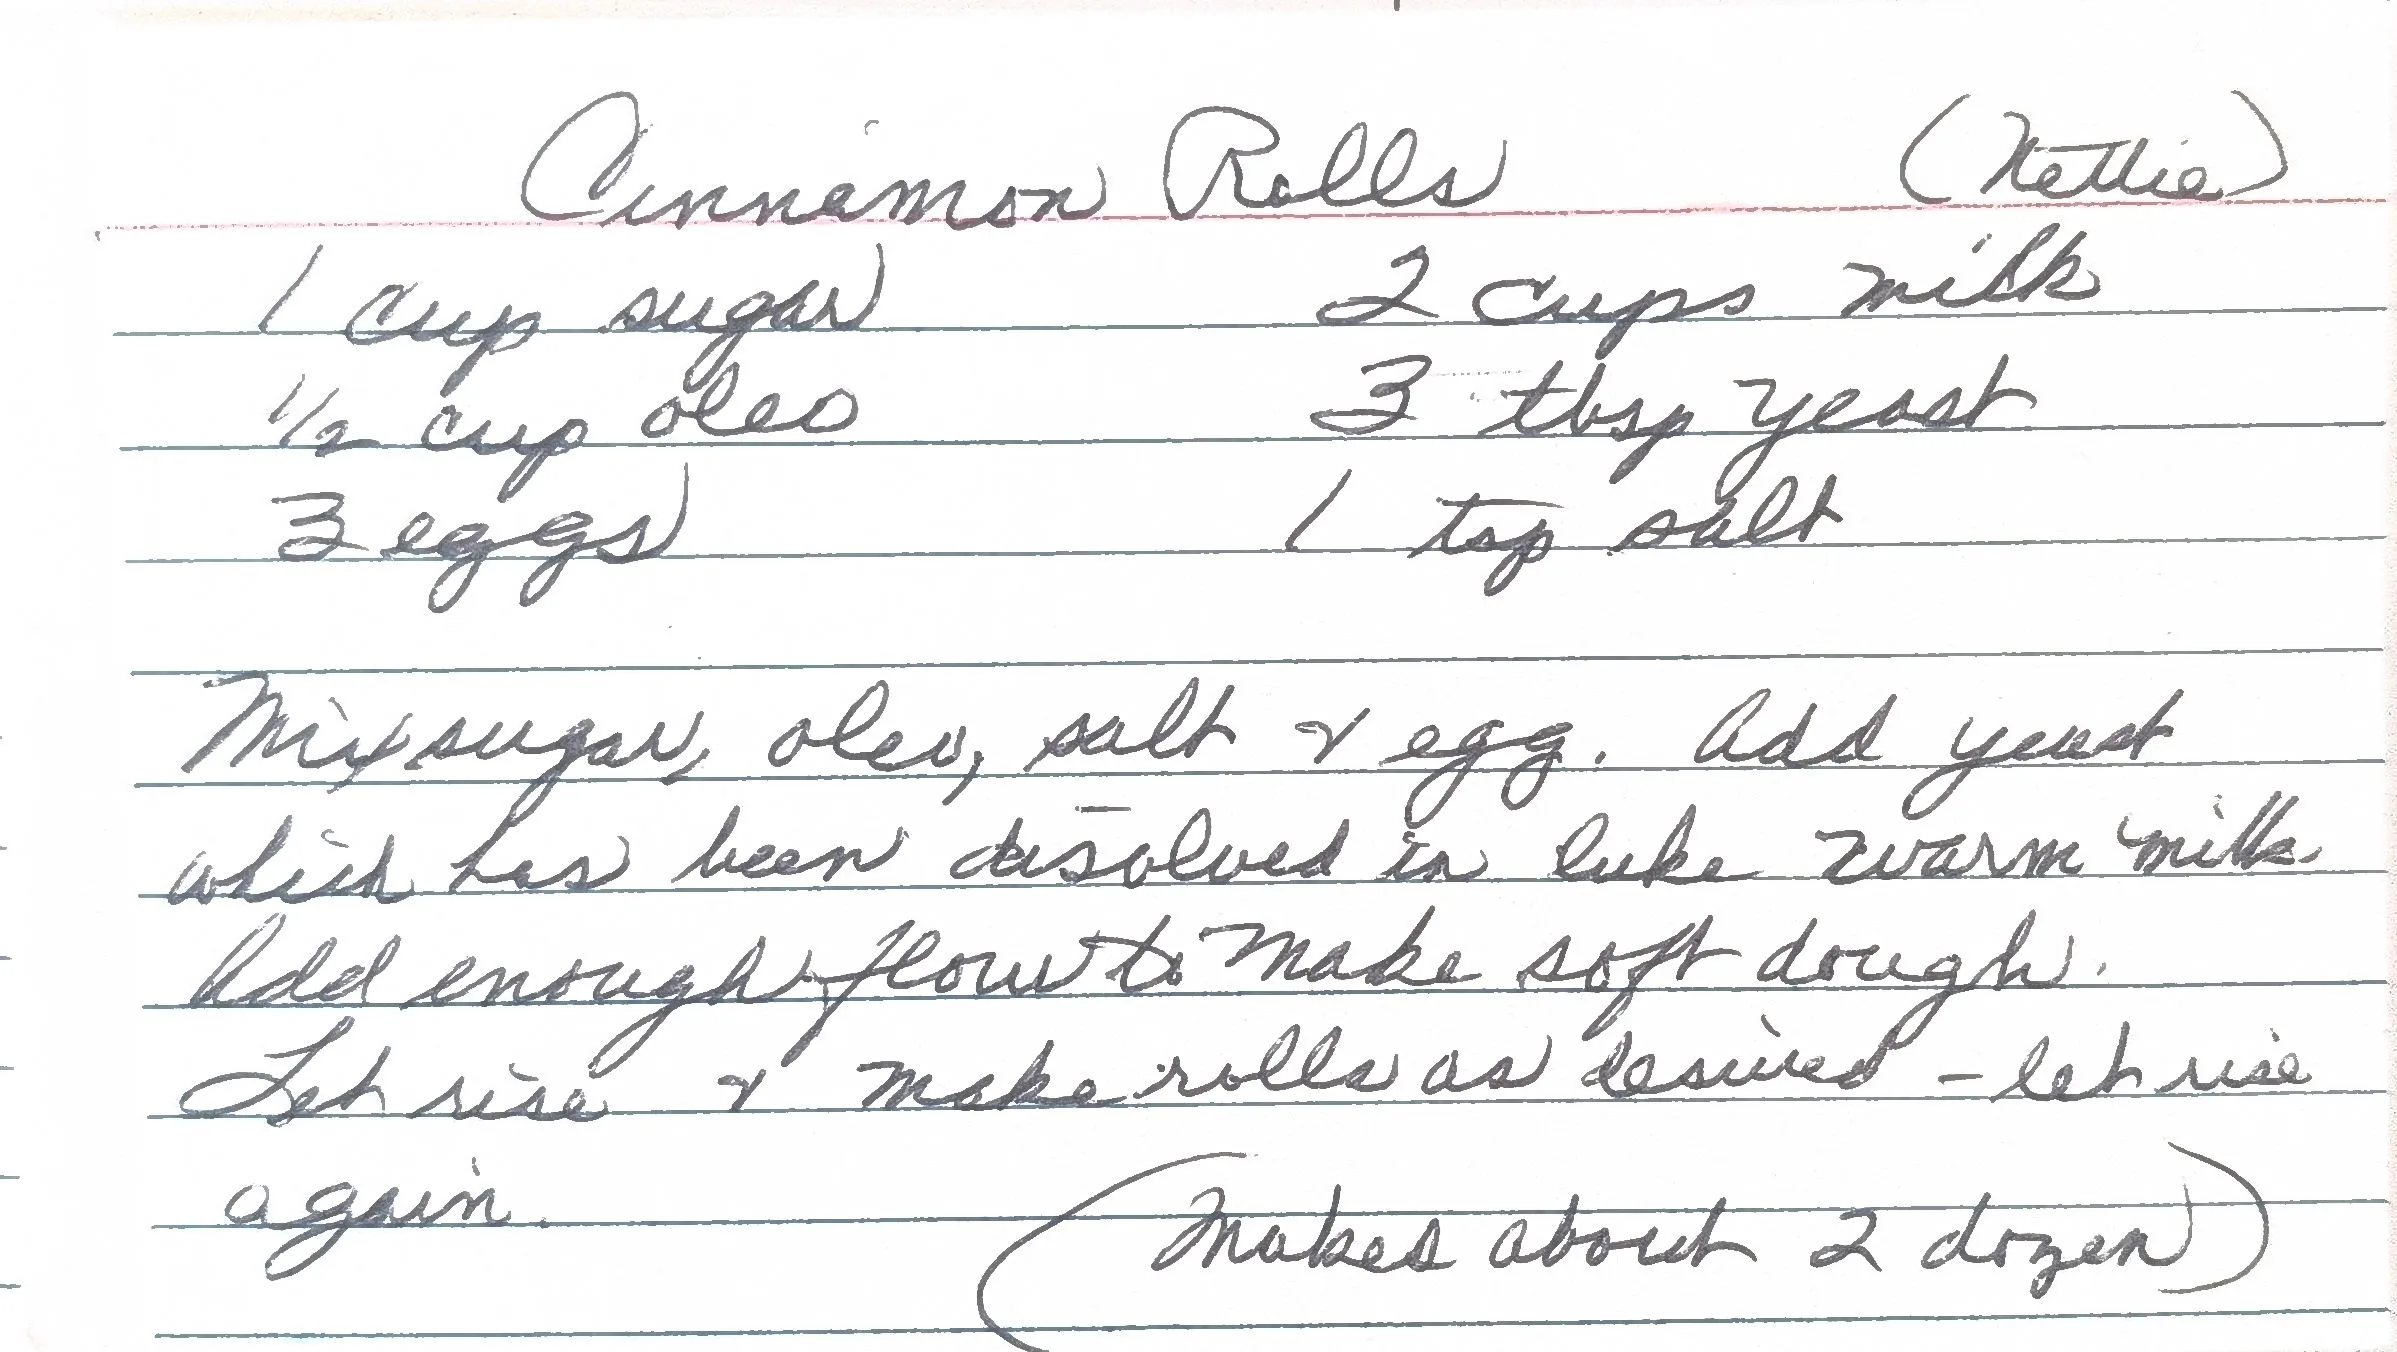 Cinnamon Rolls (Nettie)
1 cup sugar 2 cups milk
1/2 cup oleo 3 tbsp yeast
3 eggs 1 tsp salt
Mix sugar, oleo, salt & egg. Add yeast
which has been disolved in luke warm milk.
Add enough flour to make soft dough.
Let rise & make rolls as desired - let rise
again.
(Makes about 2 dozen)